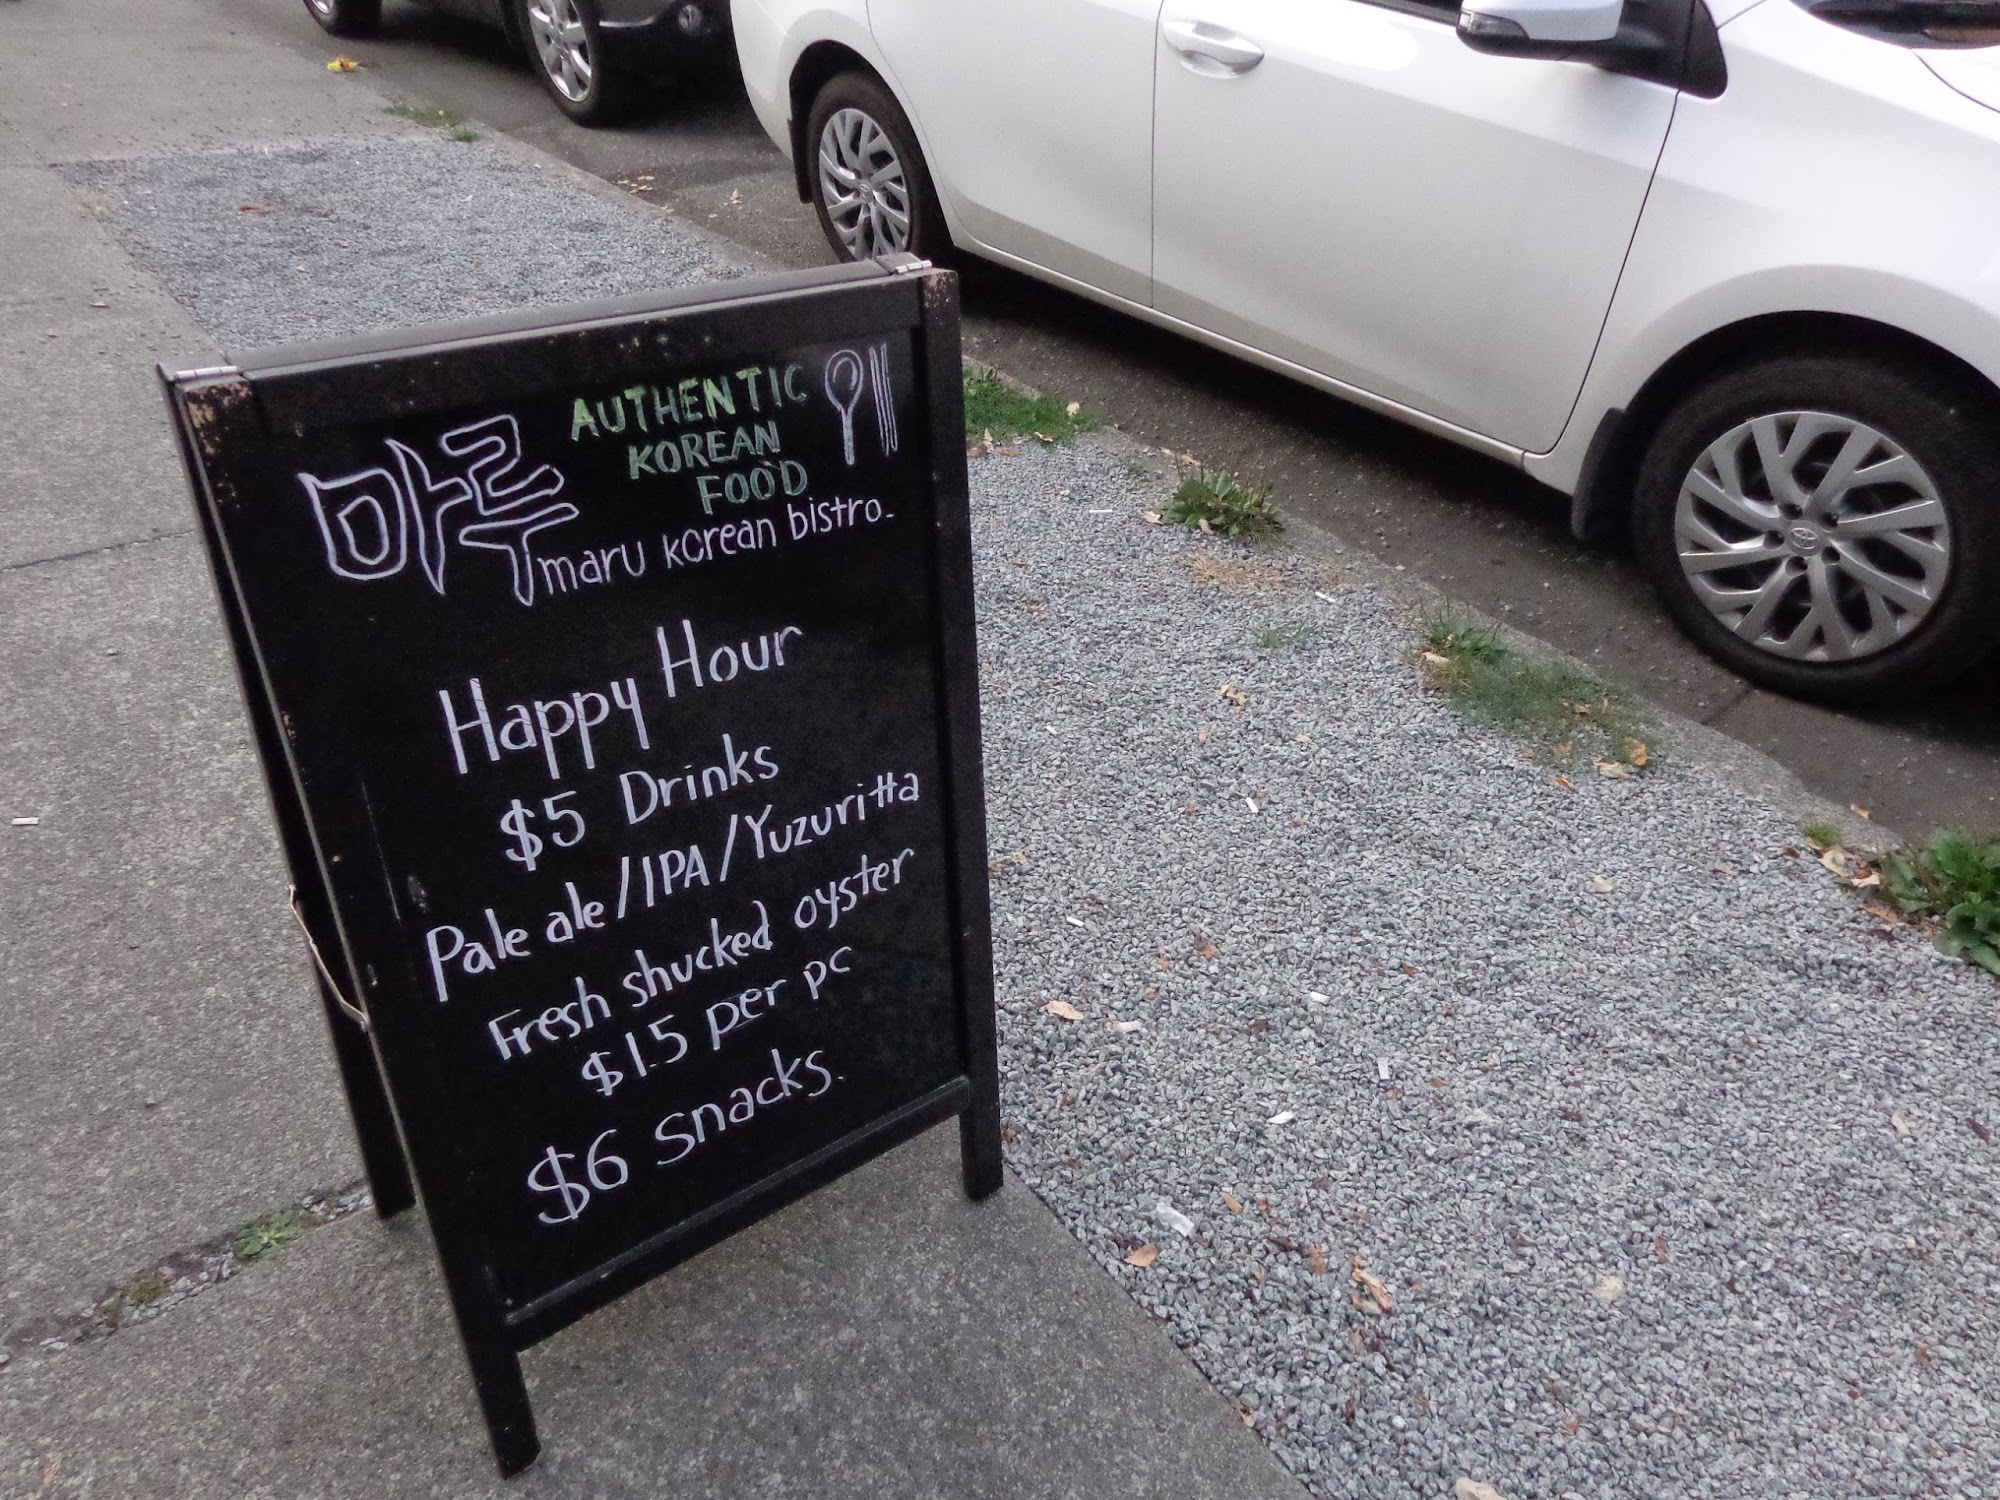 마루
AUTHENTIC
KOREAN
FOOD
maru korean bistro.
Happy Hour
$5 Drinks
Pale ale/IPA/Yuzuritta
Fresh shucked oyster
$1.5 per pc
$6 snacks.